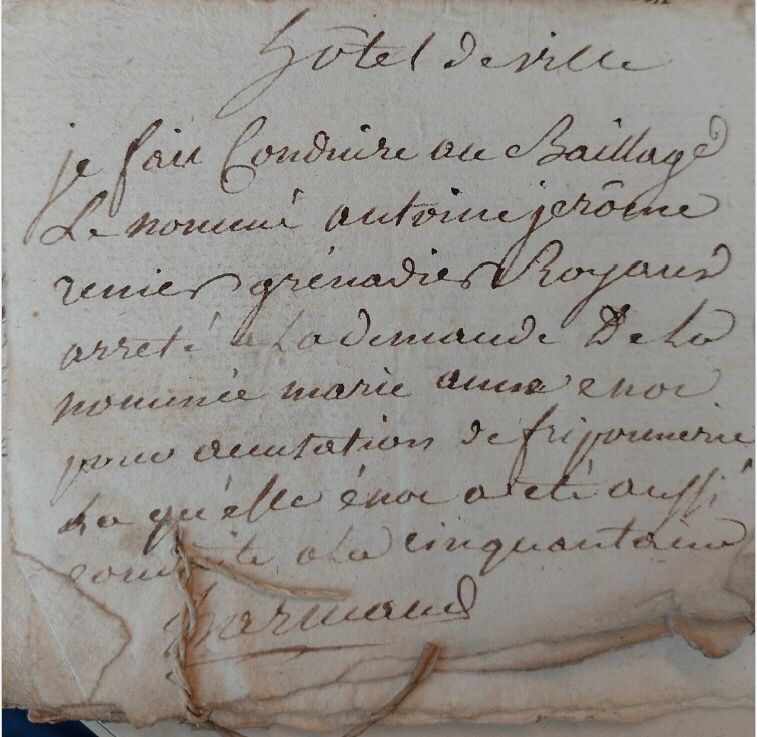 hôtel de ville
je fait Conduire au Baillage
Le nommé antoine jerôme
renier grénadier Royaux
arreté a La demande De La
nommée marie anne enoc
pour acusation de friponnerie
La qu'elle énoc a eté aussi
conduite a La cinquantaine
harmand